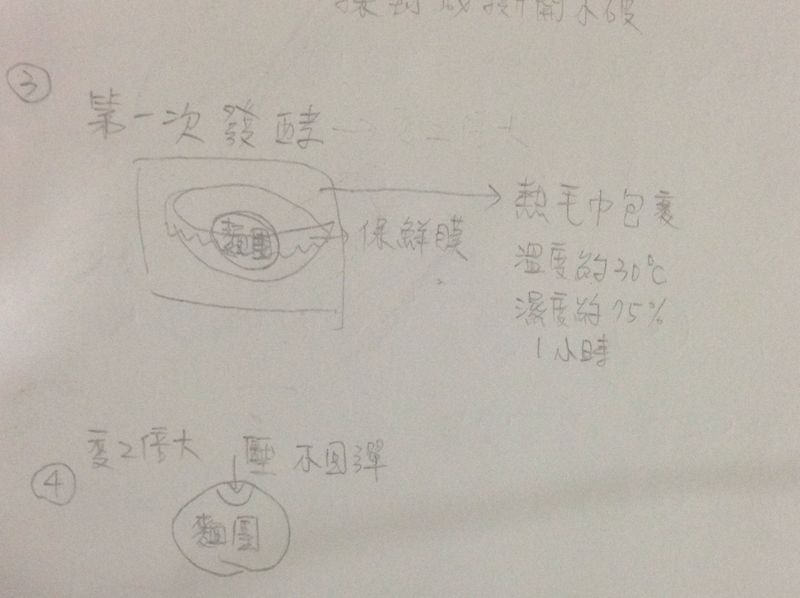 揉到成撐開不破
③
第一次發酵
麵團
保鮮膜
熱毛巾包裹
溫度約30℃
濕度約75%
1小時
④
變2倍大 壓 不回彈
麵團